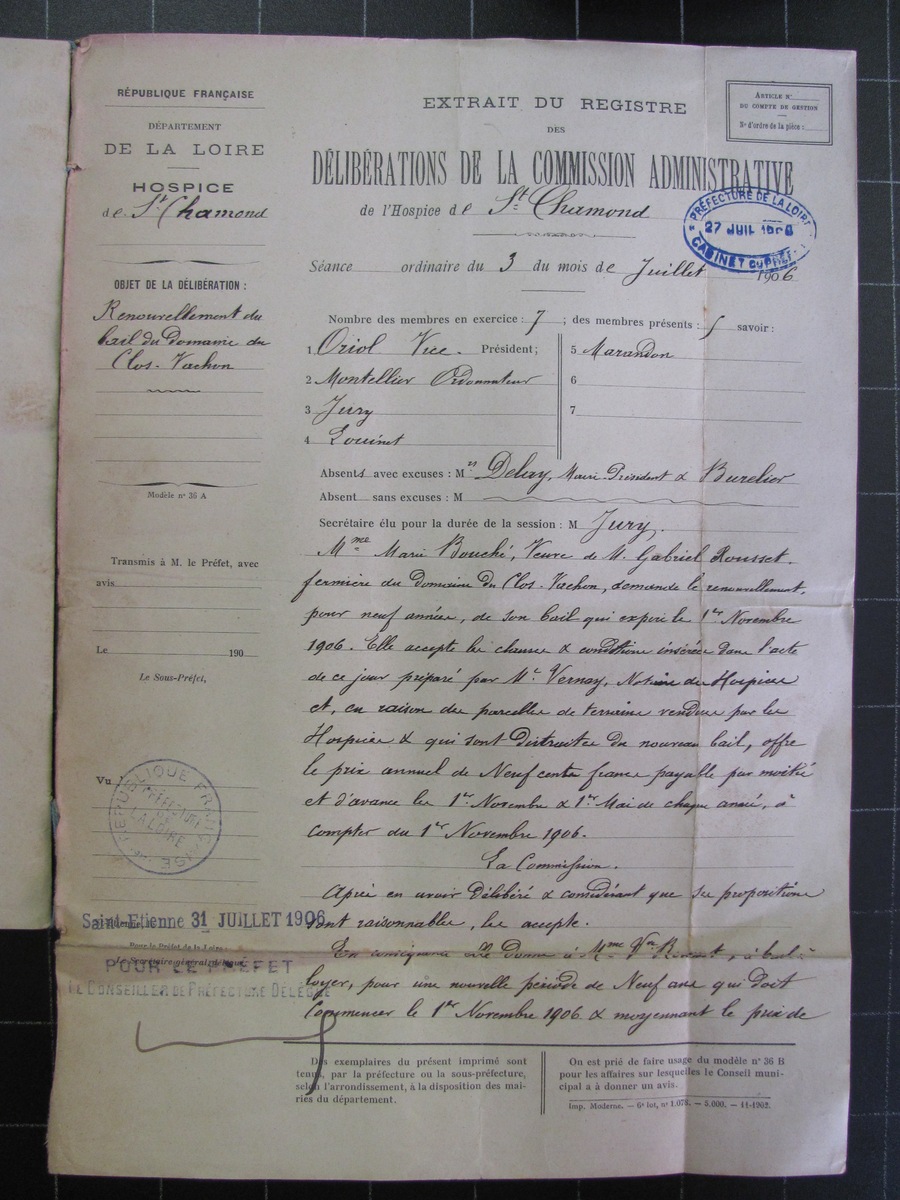 RÉPUBLIQUE FRANÇAISE
DÉPARTEMENT
DE LA LOIRE
HOSPICE
de St Chamond
OBJET DE LA DÉLIBÉRATION :
Renouvellement du
bail du Domaine du
Clos-Vachon
Modèle n° 36 A
Transmis à M. le Préfet, avec
avis
Le 190
Le Sous-Préfet,
Vu
RÉPUBLIQUE FRANÇAISE
PRÉFECTURE
DE
LA LOIRE
Saint-Etienne 31 JUILLET 1906
Pour le Préfet de la Loire :
Le Secrétaire général délégué,
POUR LE PRÉFET
LE CONSEILLER DE PRÉFECTURE DÉLÉGUÉ
EXTRAIT DU REGISTRE
DES
DÉLIBÉRATIONS DE LA COMMISSION ADMINISTRATIVE
de l'Hospice de St Chamond
ARTICLE N°
DU COMPTE DE GESTION
N° d'ordre de la pièce :
PRÉFECTURE DE LA LOIRE
27 JUIL 1906
CABINET DU PRÉFET
Séance ordinaire du 3 du mois de Juillet 1906
Nombre des membres en exercice : 7 ; des membres présents : 5 savoir :
1 Oriol Vice-Président ;
2 Montellier Ordonnateur
3 Jury
4 Louinet
5 Marandon
6
7
Absents avec excuses : Mrs Delay, Maire Président & Burelier
Absent sans excuses : M
Secrétaire élu pour la durée de la session : M Jury.
Mme Marie Bouché, Veuve de M. Gabriel Rousset.
fermière du domaine du Clos-Vachon, demande le renouvellement,
pour neuf années, de son bail qui expire le 1er Novembre
1906. Elle accepte les clauses & conditions insérées dans l'acte
de ce jour préparé par Me Vernay, Notaire des Hospices
et, en raison des parcelles de terrains vendues par les
Hospices & qui sont distraites du nouveau bail, offre
le prix annuel de Neuf cents francs payable par moitié
et d'avance les 1er Novembre & 1er Mai de chaque année, à
compter du 1er Novembre 1906.
La Commission.
Après en avoir délibéré & considérant que ses propositions
sont raisonnables, les accepte.
En conséquence Elle Donne à Mme Vve Rousset, à bail à
loyer, pour une nouvelle période de Neuf ans qui doit
Commencer le 1er Novembre 1906 & moyennant le prix de
Des exemplaires du présent imprimé sont
tenus, par la préfecture ou la sous-préfecture,
selon l'arrondissement, à la disposition des mai-
ries du département.
On est prié de faire usage du modèle n° 36 B
pour les affaires sur lesquelles le Conseil muni-
cipal a à donner un avis.
Imp. Moderne. — 6e lot, n° 1.078. — 5.000. — 11-1902.